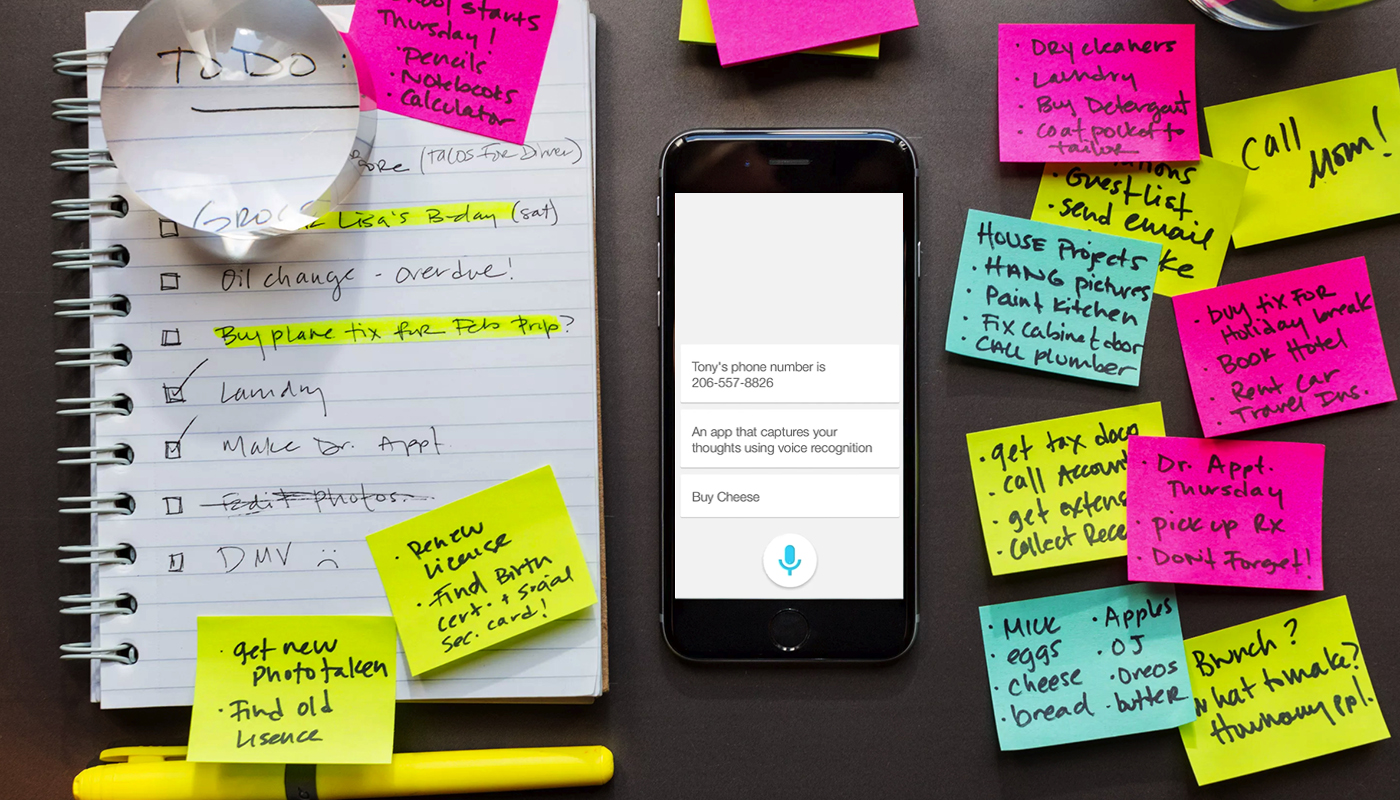 TO DO:
School starts
Thursday!
• Pencils
• Notebooks
• Calculator
(Tacos For Dinner)
Lisa's B-day (sat)
Oil change - overdue!
Buy plane tix for Feb Trip?
Laundry
Make Dr. Appt.
Edit photos
DMV
• Renew
License
• Find Birth
cert. + Social
Sec. card!
• get new
Photo taken
• Find old
Lisence
Tony's phone number is
206-557-8826
An app that captures your
thoughts using voice recognition
Buy Cheese
• Dry cleaners
• Laundry
• Buy Detergent
• coat pocket to
tailor
Call
Mom!
• Guest list
• send email
HOUSE Projects
• HANG pictures
• Paint Kitchen
• Fix cabinet door
• CALL plumber
• buy tix FOR
Holiday break
• BOOK Hotel
• Rent Car
• Travel Ins.
• get tax docs
• call Account
• get extens
• collect Rece
• Dr. Appt.
Thursday
• pick up Rx
• Don't Forget!
• Milk
• eggs
• cheese
• bread
• Apples
• OJ
• Oreos
• butter
Brunch?
what to make?
How many ppl.